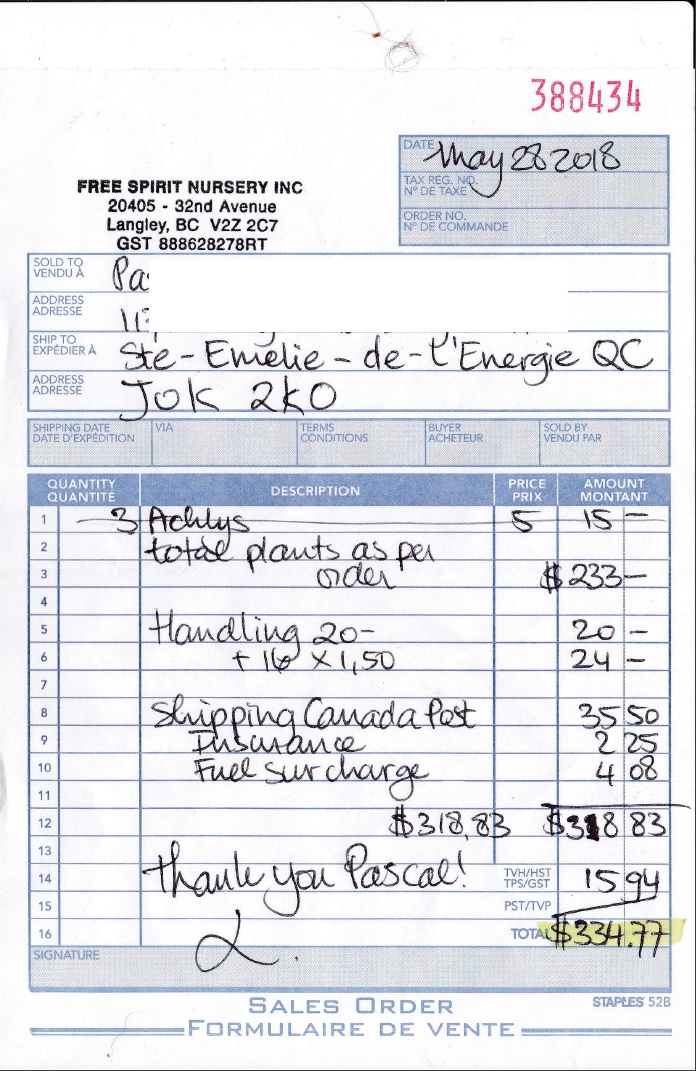 388434
DATE May 28 2018
TAX REG. NO.
N° DE TAXE
ORDER NO.
N° DE COMMANDE
FREE SPIRIT NURSERY INC
20405 - 32nd Avenue
Langley, BC V2Z 2C7
GST 888628278RT
SOLD TO
VENDU À
ADDRESS
ADRESSE
SHIP TO
EXPÉDIER À
Ste-Emélie-de-l'Energie QC
ADDRESS
ADRESSE
J0K 2K0
SHIPPING DATE VIA TERMS BUYER SOLD BY
DATE D'EXPÉDITION CONDITIONS ACHETEUR VENDU PAR
QUANTITY DESCRIPTION PRICE AMOUNT
QUANTITÉ PRIX MONTANT
1 3 Achlys 5 15 —
2 total plants as per
3 order $233—
4
5 Handling 20- 20 —
6 + 16 x 1,50 24 —
7
8 Shipping Canada Post 35 50
9 Insurance 2 25
10 Fuel surcharge 4 08
11
12 $318,83 $318 83
13
14 Thank you Pascal! TVH/HST 15 94
TPS/GST
15 PST/TVP
16 TOTAL $334.77
SIGNATURE
SALES ORDER
FORMULAIRE DE VENTE
STAPLES 52B